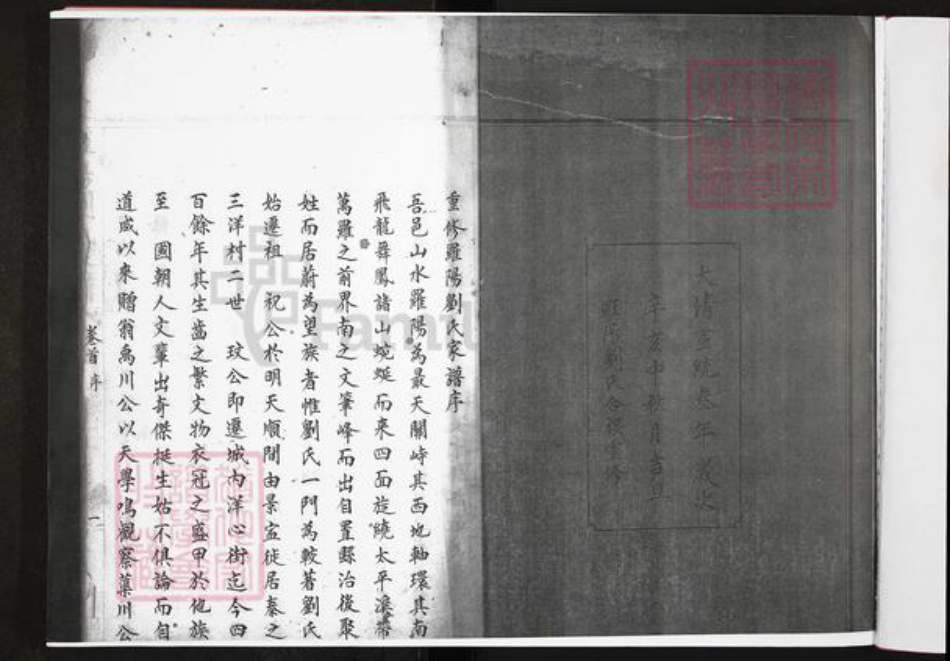 大清宣統叁年 卷次
辛亥中秋月吉旦
劉氏合譔重修
重修羅陽劉氏家譜序
吾邑山水羅陽為最天關峙其西地軸環其南
飛龍舞鳳諸山蜿蜒而來四面旋繞太平溪帶
萬羅之前界南之文筆峰而出自置縣治後聚
姓而居蔚為望族者惟劉氏一門為較著劉氏
始遷祖 祝公於明天順間由景寧徙居泰之
三洋村二世 玟公即遷城內洋心街迄今四
百餘年其生齒之繁文物衣冠之盛甲於他族
至 國朝人文輩出奇傑挺生姑不俱論而自
道咸以來贈翁禹川公以天學鳴觀察藁川公
卷首 序
一
Family